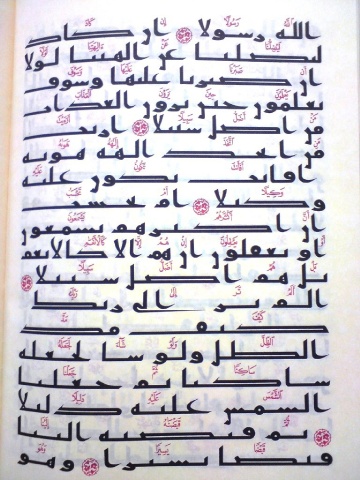 الله رسولا ۝ ان كاد
ليضلنا عن الهتنا لولا
ان صبرنا عليها وسوف
يعلمون حين يرون العذاب
من اضل سبيلا ۝ اريت
من اتخذ الهه هويه
افانت تكون عليه
وكيلا ۝ ام تحسب
ان اكثرهم يسمعون
او يعقلون ان هم الا كالانعم
بل هم اضل سبيلا ۝
الم تر الى ربك
كيف مد
الظل ولو شا لجعله
ساكنا ثم جعلنا
الشمس عليه دليلا
۝ ثم قبضنه الينا
قبضا يسيرا ۝ وهو